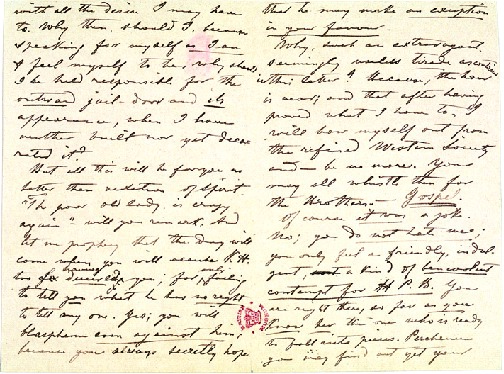 with all the desire I may have
to. Why then, should I, because
speaking for myself as I am
I feel myself to be, why should
I be held responsible for the
outward jail-door and its
appearance, when I have
neither built nor yet deco-
rated it?
But all this will be for you no
better than vexation of spirit
"The poor old lady is crazy
again" — will you remark. And
let me prophesy that the day will
come when you will accuse K.H.
has deceived you; for, failing
to tell you what he has no right
to tell any one. Yes; you will
blaspheme even against him;
because you always secretly hope
that he may make an exception
in your favour.
Why, such an extravagant,
seemingly useless tirade as contained
in this letter? Because, the hour
is near; and that after having
proved what I have to, I
will bow myself out from
the refined Western Society
and — be no more. You
may all whistle then for
the Brothers. — Gospel.
Of course it was a joke.
No; you do not hate me;
you only feel a friendly, indul-
gent, a kind of benevolent
contempt for H.P.B. You
are right there, so far as you
know her the one who is ready
to fall into pieces. Perchance
you may find out yet your